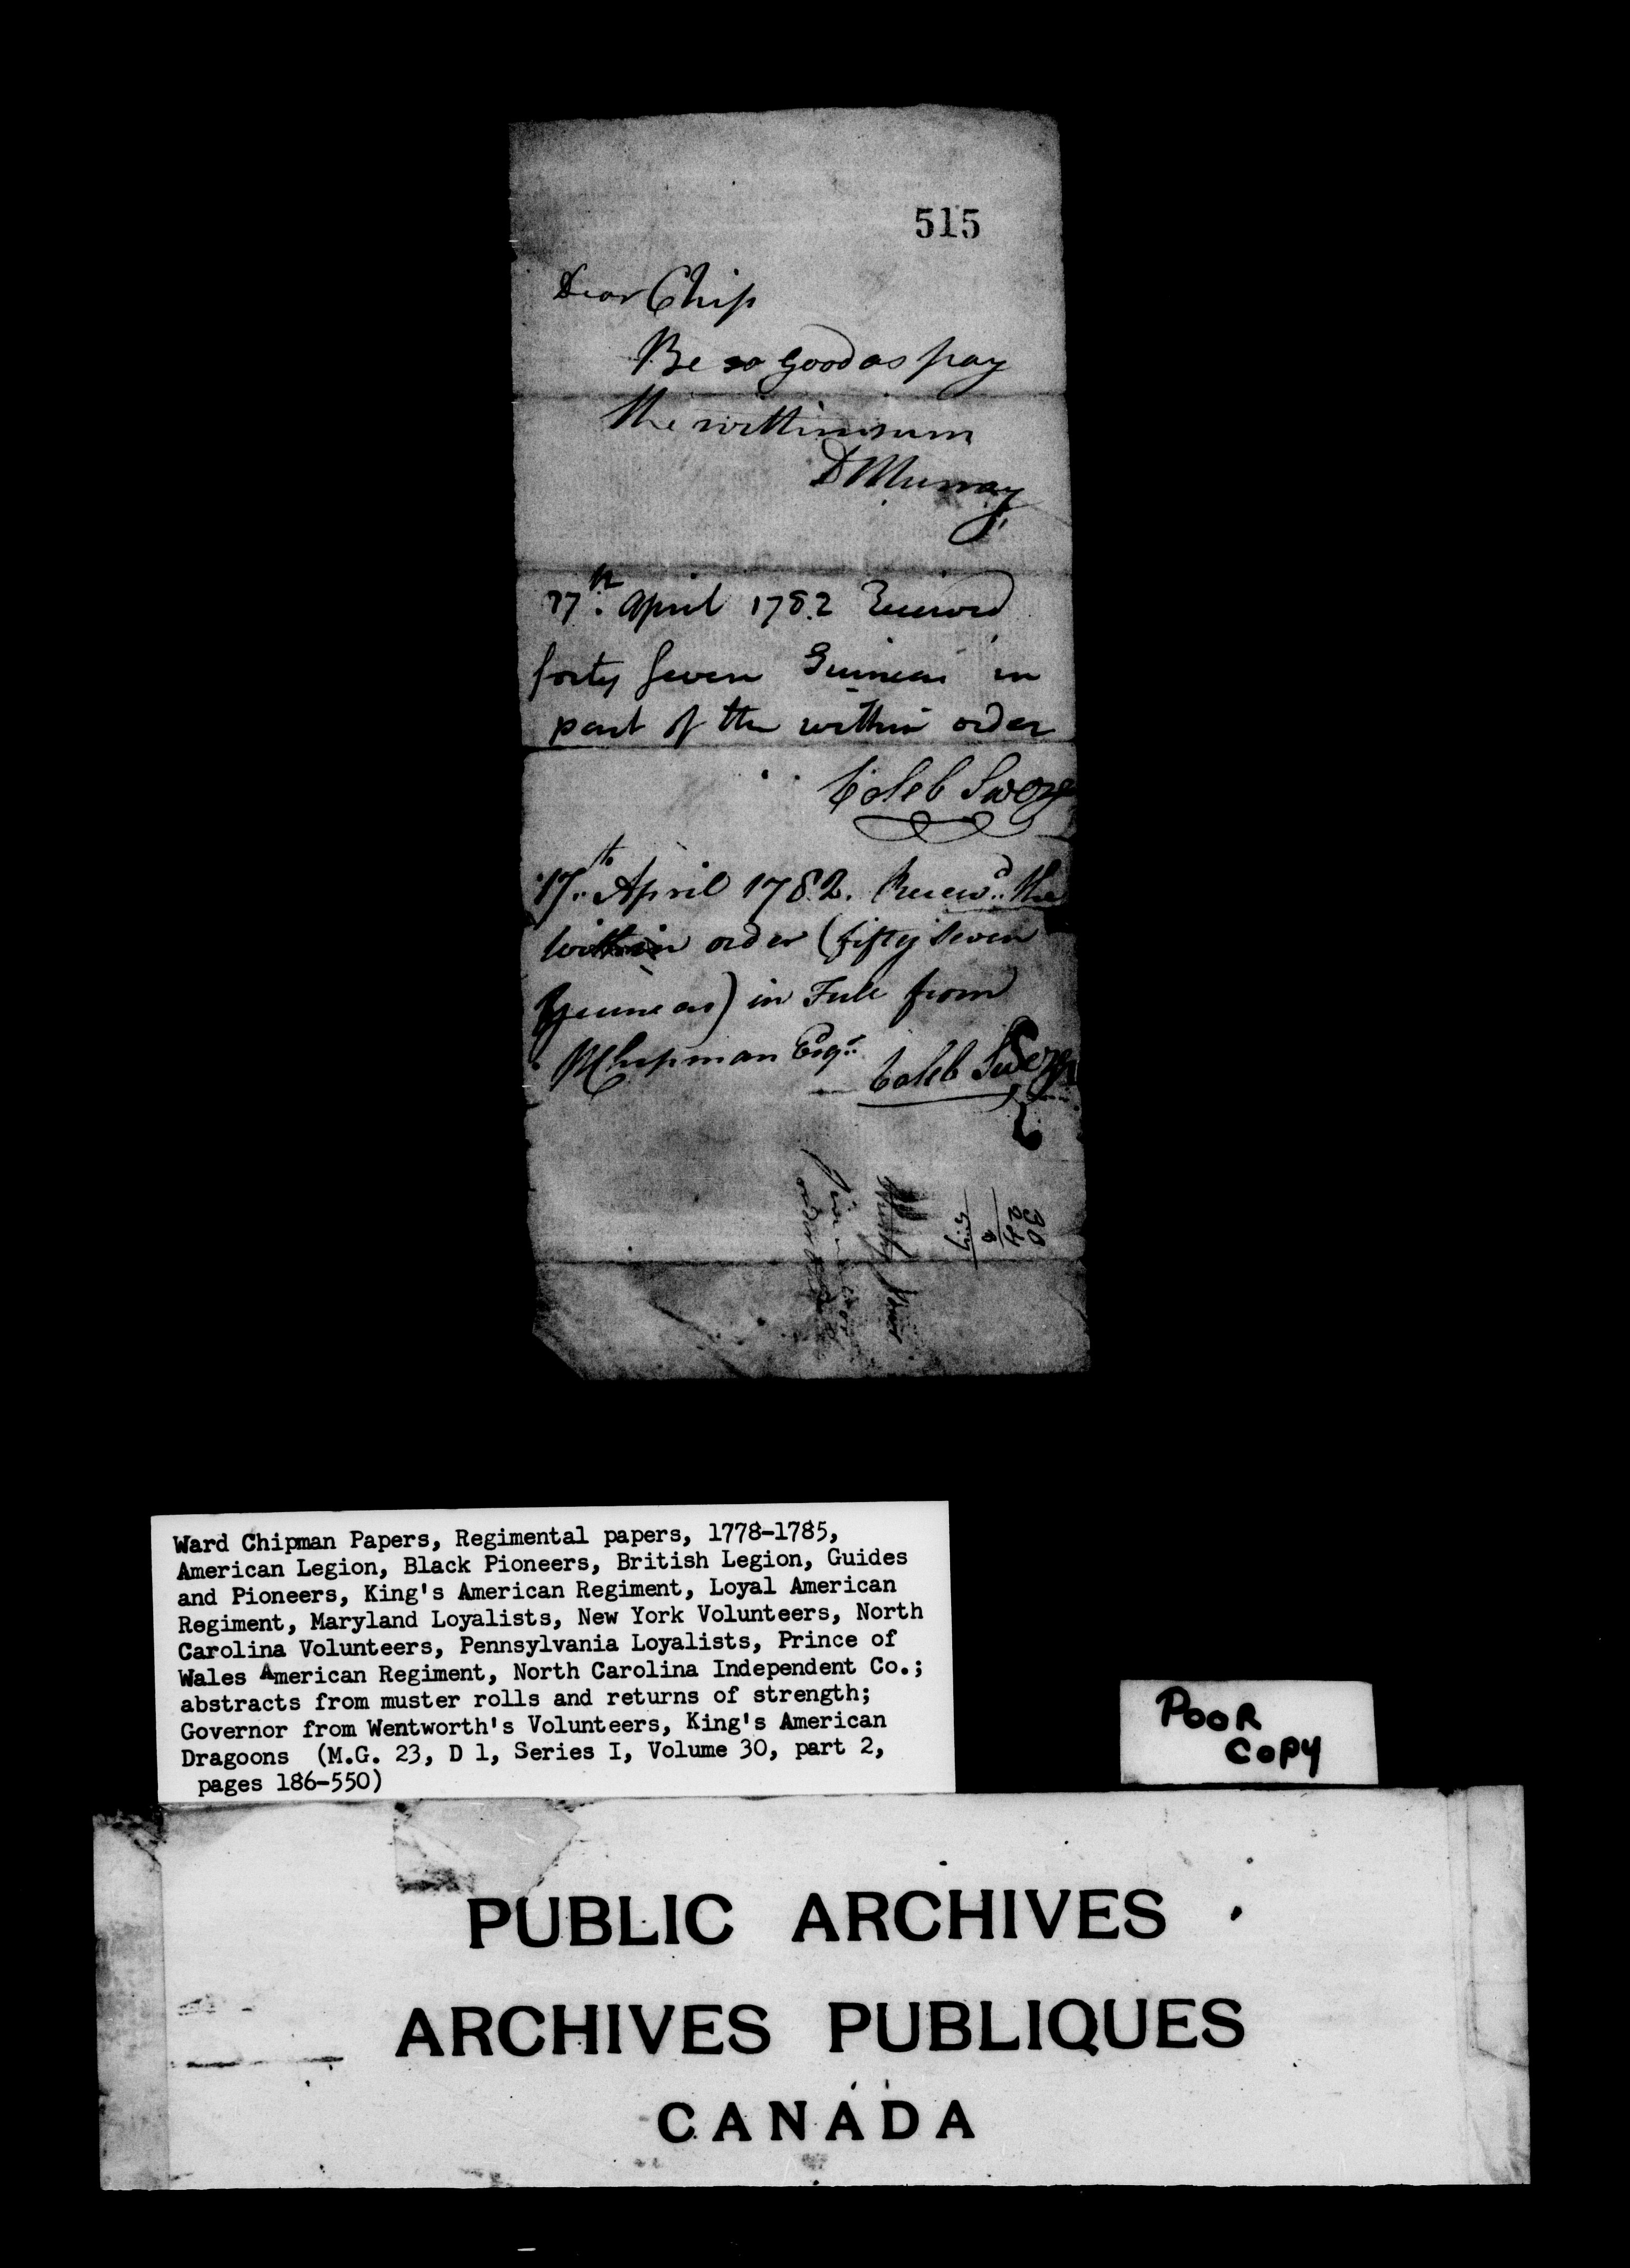 515
Dear Chip
Be so good as pay
the within sum
D Murray
17th. April 1782 Received
forty Seven Guineas in
part of the within order
Caleb Swezy
17th. April 1782. Receiv'd. the
within order (fifty seven
Guineas) in Full from
WChipman Esqr.. Caleb Swezy
Ward Chipman Papers, Regimental papers, 1778-1785,
American Legion, Black Pioneers, British Legion, Guides
and Pioneers, King's American Regiment, Loyal American
Regiment, Maryland Loyalists, New York Volunteers, North
Carolina Volunteers, Pennsylvania Loyalists, Prince of
Wales American Regiment, North Carolina Independent Co.;
abstracts from muster rolls and returns of strength;
Governor from Wentworth's Volunteers, King's American
Dragoons (M.G. 23, D 1, Series I, Volume 30, part 2,
pages 186-550)
POOR
COPY
PUBLIC ARCHIVES
ARCHIVES PUBLIQUES
CANADA